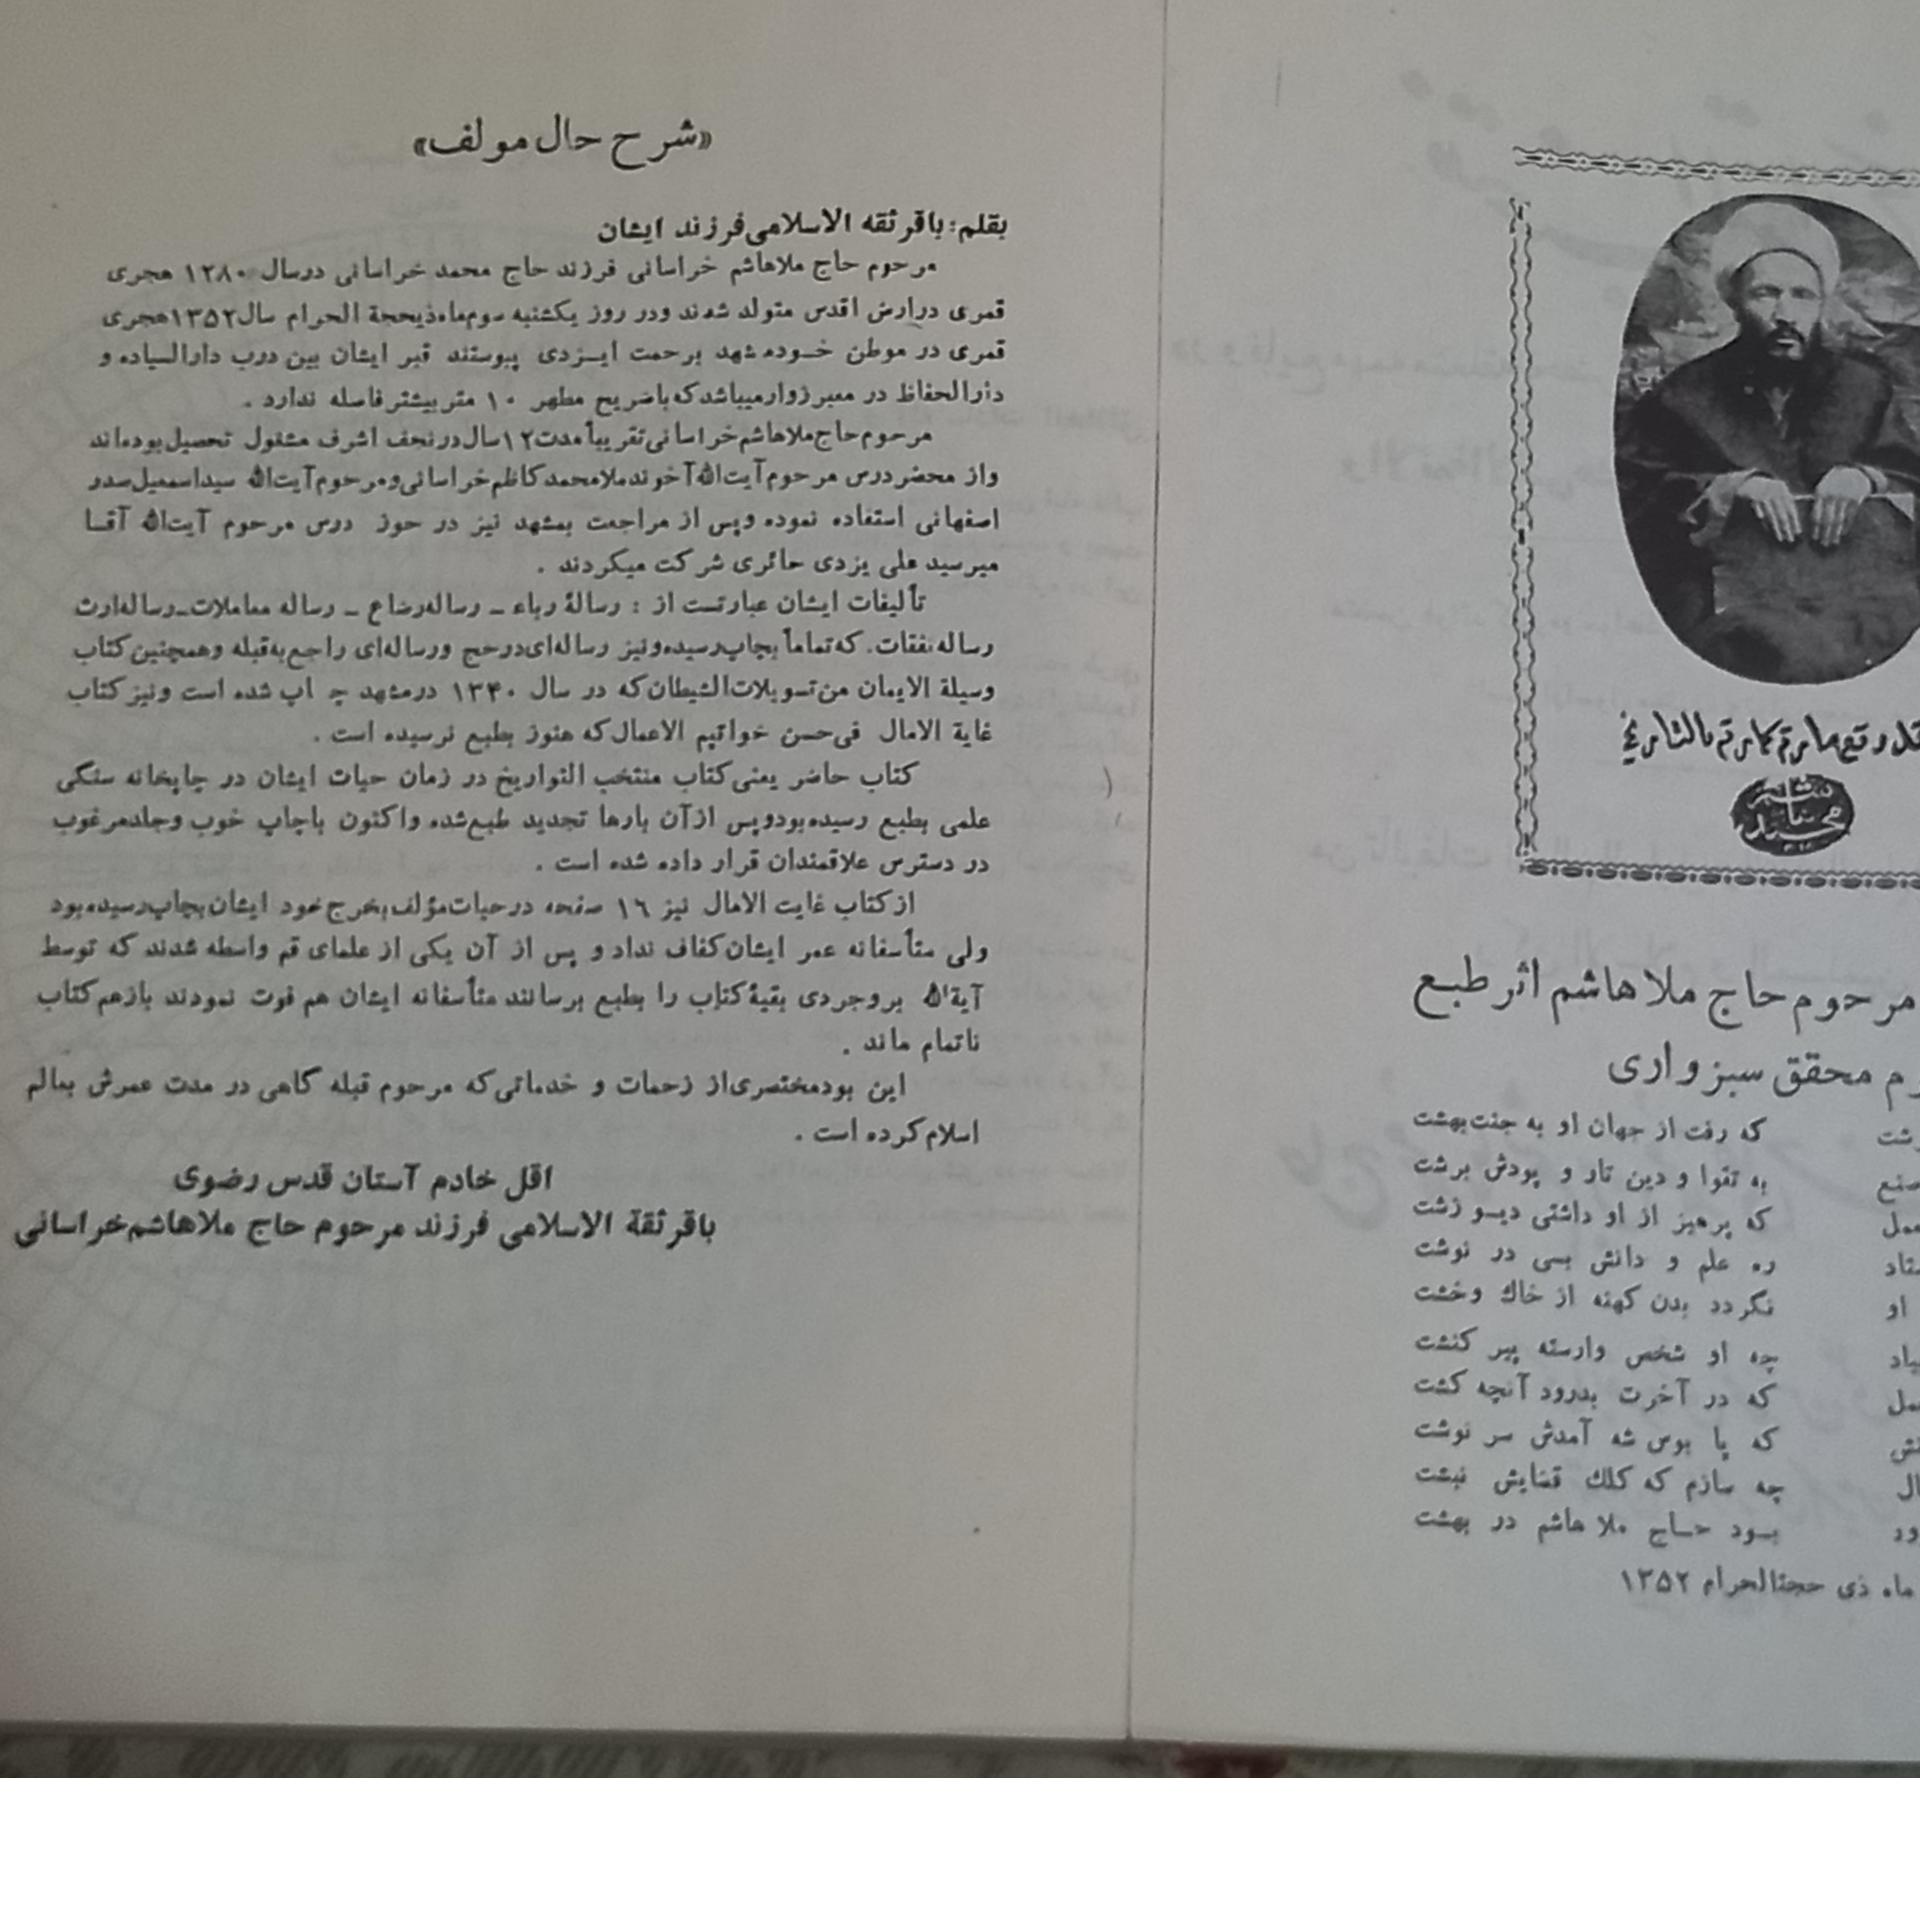 «شرح حال مولف»
بقلم: باقر ثقه الاسلامی فرزند ایشان
مرحوم حاج ملاهاشم خراسانی فرزند حاج محمد خراسانی درسال ۱۲۸۰ هجری
قمری درارض اقدس متولد شدند ودر روز یکشنبه سوم‌ماه‌ذیحجة الحرام سال۱۳۵۲هجری
قمری در موطن خود مشهد برحمت ایزدی پیوستند قبر ایشان بین درب دارالسیاده و
دارالحفاظ در معبر زوار میباشد که باضریح مطهر ۱۰ متر بیشتر فاصله ندارد .
مرحوم حاج ملاهاشم خراسانی تقریباً مدت۱۲سال در نجف اشرف مشغول تحصیل بوده‌اند
واز محضر درس مرحوم آیت‌الله آخوند ملامحمد کاظم خراسانی و مرحوم آیت‌الله سیداسمعیل صدر
اصفهانی استفاده نموده وپس از مراجعت بمشهد نیز در حوز درس مرحوم آیت‌الله آقا
میرسید علی یزدی حائری شرکت میکردند .
تألیفات ایشان عبارتست از : رسالهٔ رباء ـ رساله رضاع ـ رساله معاملات ـ رساله ارث
رساله نفقات. که تماماً بچاپ رسیده ونیز رساله‌ای در حج ورساله‌ای راجع به قبله وهمچنین کتاب
وسیلة الایمان من تسویلات الشیطان که در سال ۱۳۴۰ درمشهد چ اپ شده است ونیز کتاب
غایة الامال فی حسن خواتیم الاعمال که هنوز بطبع نرسیده است .
کتاب حاضر یعنی کتاب منتخب التواریخ در زمان حیات ایشان در چاپخانه سنگی
علمی بطبع رسیده بود وپس از آن بارها تجدید طبع شده واکنون باچاپ خوب وجلد مرغوب
در دسترس علاقمندان قرار داده شده است .
از کتاب غایت الامال نیز ۱۶ صفحه در حیات مؤلف بخرج خود ایشان بچاپ رسیده بود
ولی متأسفانه عمر ایشان کفاف نداد و پس از آن یکی از علمای قم واسطه شدند که توسط
آیةالله بروجردی بقیهٔ کتاب را بطبع برسانند متأسفانه ایشان هم فوت نمودند بازهم کتاب
ناتمام ماند .
این بود مختصری از زحمات و خدماتی که مرحوم قبله گاهی در مدت عمرش بعالم
اسلام کرده است .
اقل خادم آستان قدس رضوی
باقر ثقة الاسلامی فرزند مرحوم حاج ملاهاشم خراسانی
مرحوم حاج ملا هاشم اثر طبع
محقق سبزواری
که رفت از جهان او به جنت بهشت
صنع به تقوا و دین تار و پودش برشت
که پرهیز از او داشتی دیو زشت
ره علم و دانش بسی در نوشت
او نگردد بدن کهنه از خاك وخشت
چه او شخص وارسته پیر کنشت
که در آخرت بدرود آنچه کشت
که پا بوس شه آمدش سر نوشت
چه سازم که کلك قضایش نبشت
بود حاج ملا هاشم در بهشت
ماه ذی حجةالحرام ۱۳۵۲